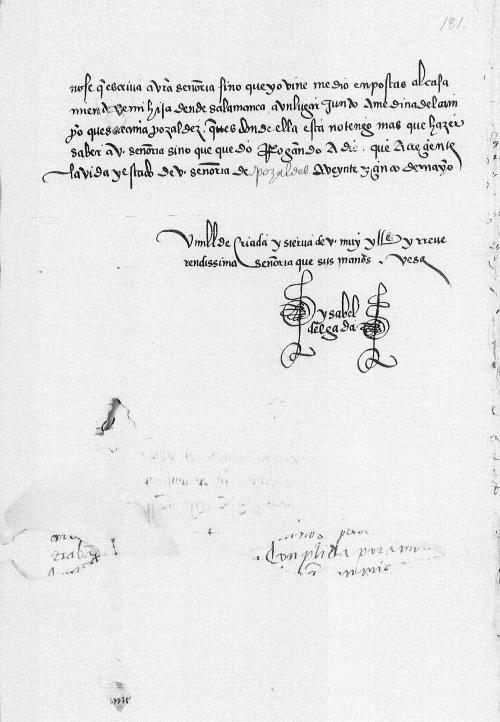 181.
no se q escriva a vra señoria sino que yo vine medio en postas al casa
miento de mi hija dende salamanca a un lugar junto a medina del cam
po que se llama pozaldez. ques donde ella esta no tengo mas que hazer
saber a v. señoria sino que quedo Rogando a dios que acreciente
la vida y estado de v. señoria de pozaldez a veynte y cinco de mayo
Umillde criada y sierva de v. muy ylle y rreve
rendissima señoria que sus manos vesa
ysabel
delgada
conplida por